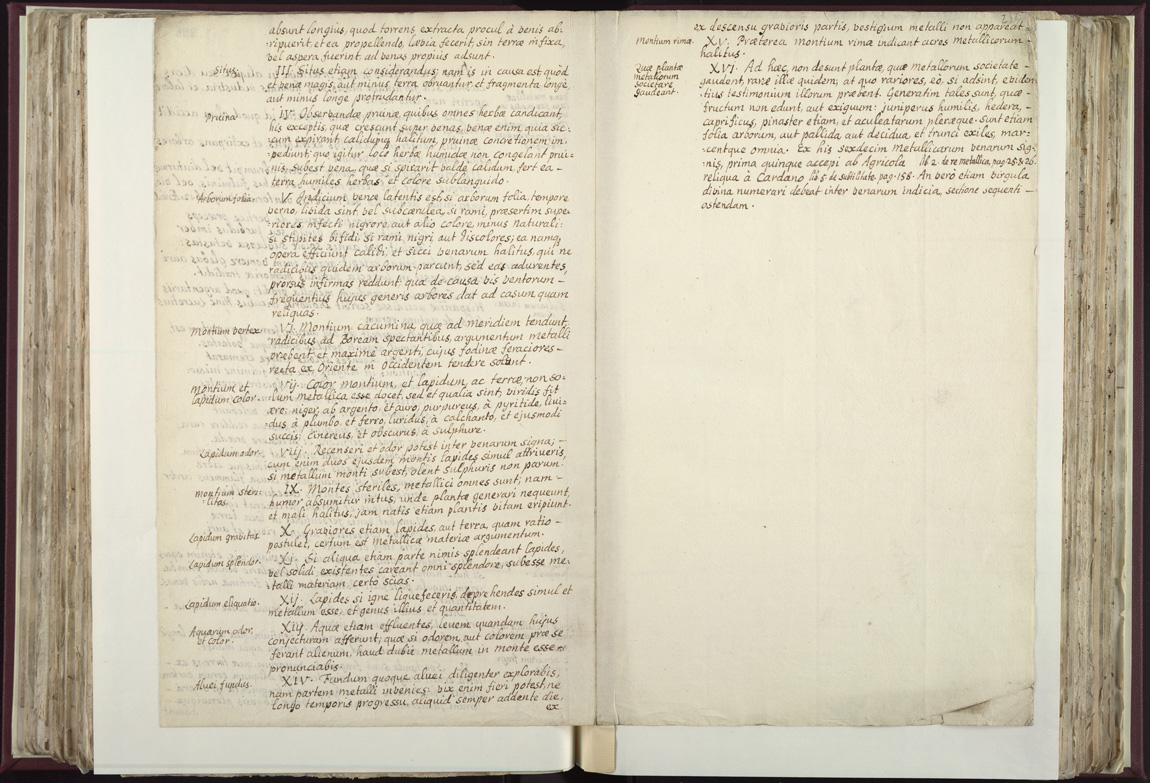 absunt longius, quod torrens, extracta procul à venis ab-
ripuerit, et ea propellendo, lævia fecerit, sin terræ infixa,
vel aspera fuerint, ad venas propius adsunt.
Situs.
III. Situs etiam considerandus; nam is in causa est, quod
et venæ magis, aut minus terra obruantur, et fragmenta longe,
aut minus longe protrudantur.
Pruina
IV. Observandæ pruinæ, quibus omnes herbæ candicant,
his exceptis, quæ crescunt super venas, venæ enim, quia sic-
cum expirant, calidumq. halitum, pruinæ concretionem im-
pediunt; quo igitur loco herbæ humidæ non congelant prui-
nis, subest vena, quæ si spirarit valde calidum, fert ea
terra humiles herbas, et colore sublanguido.
Arborum folia.
V. Indicium venæ latentis est, si arborum folia, tempore
verno, livida sint vel subcærulea, si rami, præsertim supe-
riores infecti nigrore, aut alio colore, minus naturali:
si stipites bifidi, si rami, nigri aut discolores; ea namq.
opera efficiunt calidi, et sicci venarum halitus, qui ne
radicibus quidem arborum parcunt, sed eas adurentes,
prorsus infirmas reddunt: qua de causa, vis ventorum
frequentius hujus generis arbores dat ad casum, quam
reliquas.
Montium vertex.
VI. Montium cacumina, quæ ad meridiem tendunt,
radicibus ad Boream spectantibus, argumentum metalli
præbent, et maxime argenti, cujus fodinæ feraciores
recta ex Oriente in Occidentem tendere solent.
Montium et
lapidum color.
Vij. Color montium, et lapidum, ac terræ, non so-
lum metallica esse docet, sed et qualia sint; viridis fit
ære; niger, ab argento, et auro, purpureus, à pyritide, livi-
dus à plumbo et ferro, luridus, à calchanto, et ejusmodi
succis; cinereus, et obscurus, à sulphure.
Lapidum odor.
Viij. Recenseri et odor potest inter venarum signa;
cum enim duos ejusdem montis lapides simul attriveris,
si metallum monti subest, olent sulphuris non parum.
montium steri-
litas.
IX. Montes steriles, metallici omnes sunt; nam
humor absumitur intus, unde plantæ generari nequeunt,
et mali halitus, jam natis etiam plantis vitam eripiunt.
Lapidum gravitas.
X. Graviores etiam lapides, aut terra, quam ratio
postulet, certum est metallicæ materiæ argumentum.
Lapidum splendor.
XI. Si aliqua etiam parte nimis splendeant lapides,
vel solidi existentes careant omni splendore, subesse me-
talli materiam, certo scias.
Lapidum eliquatio.
Xij. Lapides si igne liquefeceris, deprehendes simul et
metallum esse, et genus illius et quantitatem.
Aquarum odor,
et color.
Xiij. Aquæ etiam effluentes, levem quandam hujus
conjecturam afferunt; quæ si odorem, aut colorem præ se
ferant alienum, haud dubie metallum in monte esse
pronunciabis.
Alvei fundus.
XIV. Fundum quoque alvei diligenter explorabis,
nam partem metalli invenies: vix enim fieri potest, ne
longo temporis progressu, aliquid semper addente die,
ex
ex descensu gravioris partis, vestigium metalli non appareat.
Montium rimæ.
XV. Præterea montium rimæ indicant acres metallicorum
halitus.
Quæ plantæ
metallorum
societate
gaudeant.
XVI. Ad hæc, non desunt plantæ, quæ metallorum societate
gaudont, raræ illæ quidem; at quo rariores, eo, si adsint, eviden-
tius testimonium illorum præbent. Generatim tales sunt, quæ
fructum non edunt, aut exiguum: juniperus humilis, hedera,
caprificus, pinaster etiam, et aculeatarum pleræque. Sunt etiam
folia arborum, aut pallida, aut decidua, et trunci exiles, mar-
centque omnia. Ex his sexdecim metallicarum venarum sig-
nis, prima quinque accepi ab Agricola lib 2. de re metallica, pag. 25. & 26.
reliqua à Cardano lib 5 de subtilitate. pag. 158. An vero etiam virgula
divina numerari debeat inter venarum indicia, sectione sequenti
ostendam.